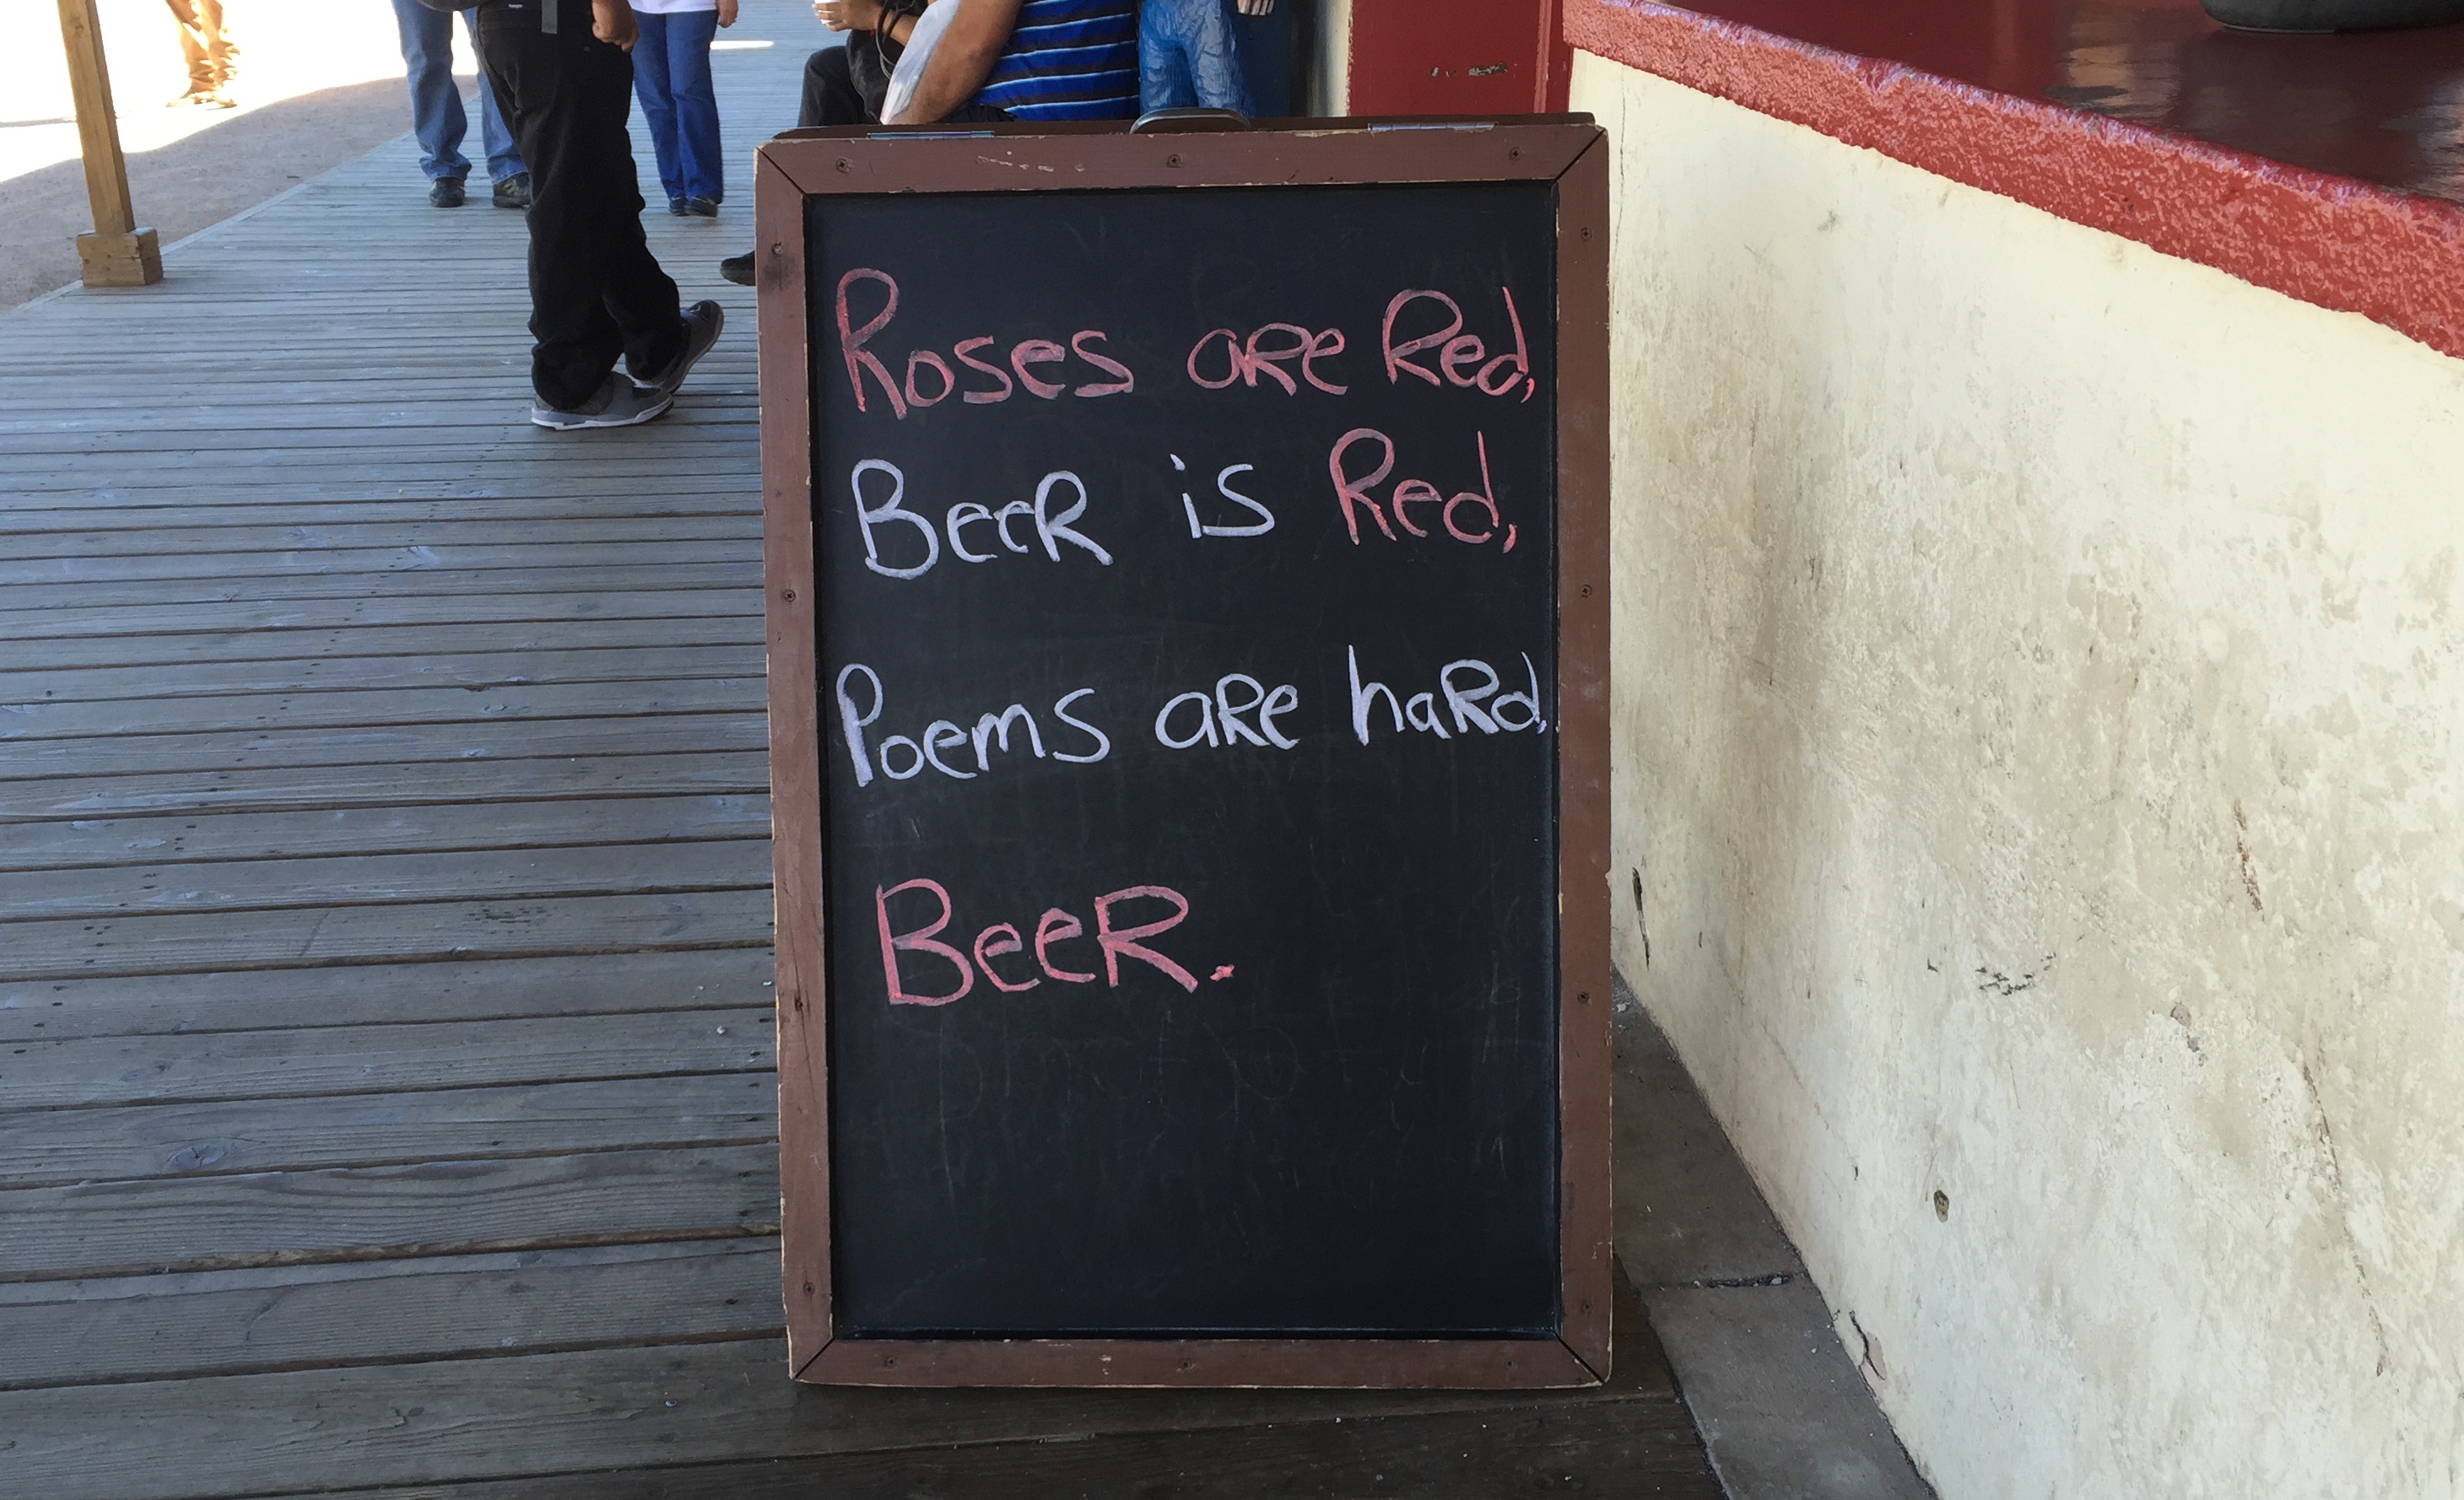 Roses are Red,
Beer is Red,
Poems are hard,
Beer.